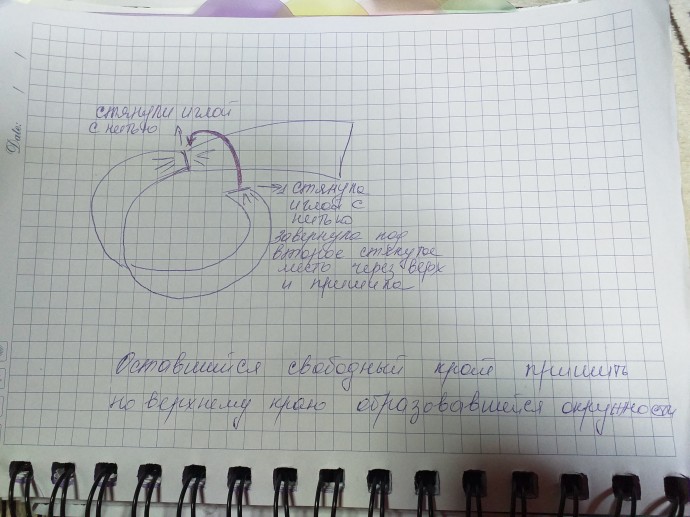 Date: / /
стянули иглой
с нитью
стянула
иглой с
нитью
завернула под
второе стянутое
место через верх
и пришила
Оставшийся свободный край пришить
по верхнему краю образовавшейся окружности